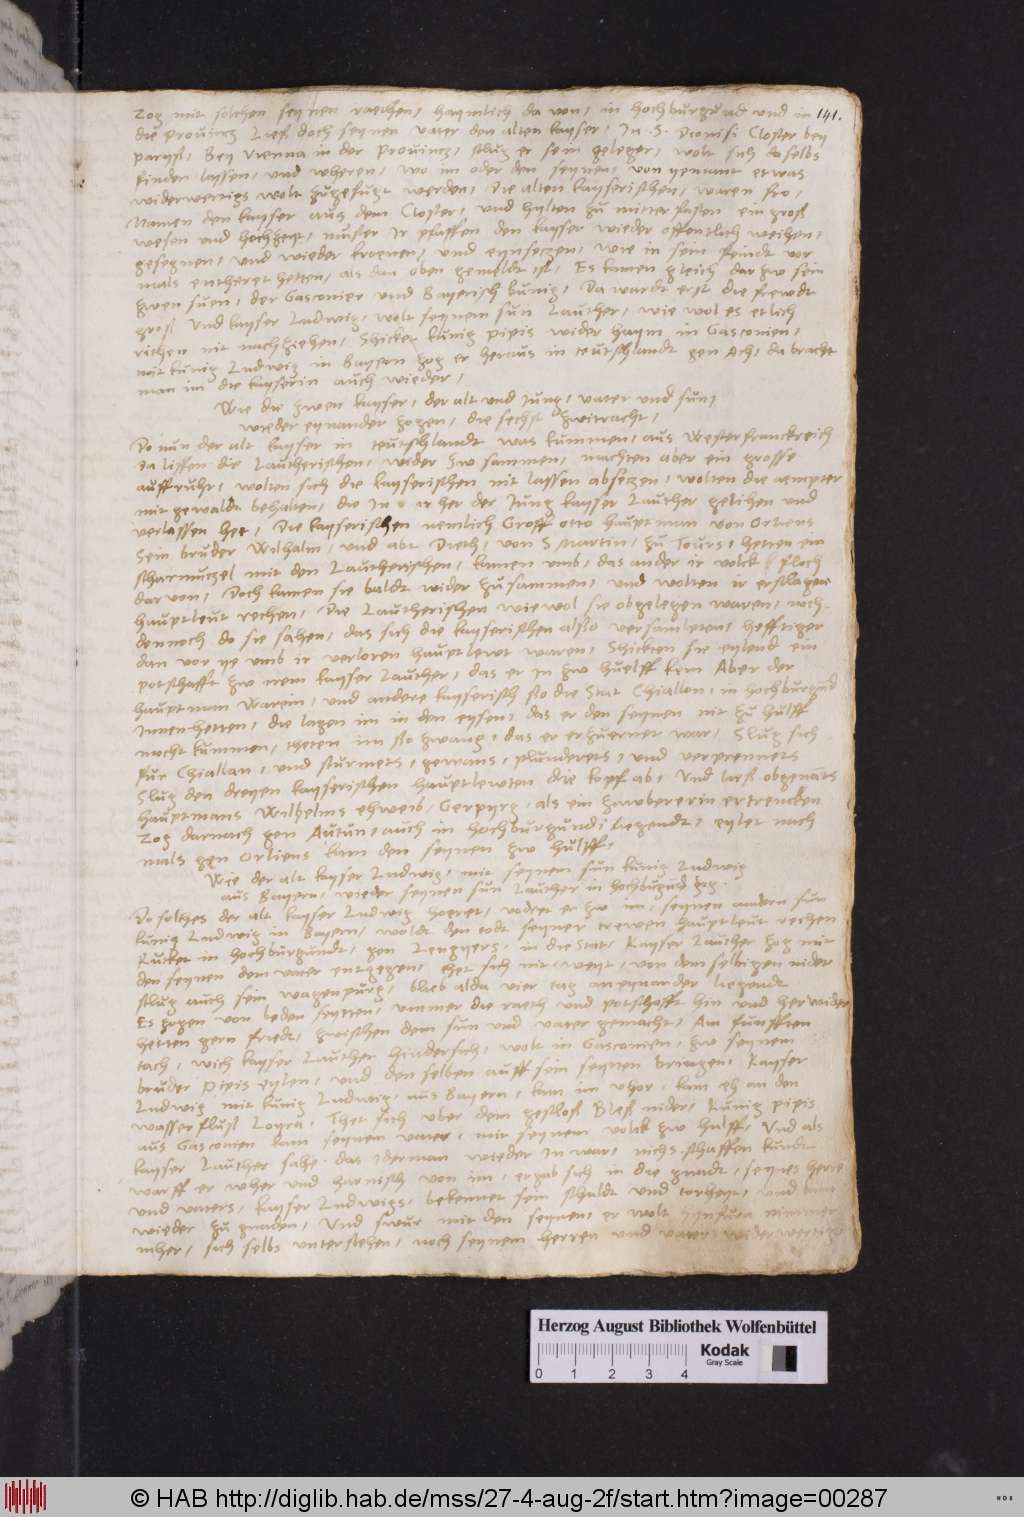 141.
Zog mit solchen seynen raethen, haymlich da von, in hochburgund und in
die prouintz Ließ doch seynen vater den alten kayser, In S. Dionisi Closter bey
paryß, Bey Vienna in der Prouintz, slug er sein geleger, wolt sich daselbs
finden lassen, und wheren, wo im oder den seynen, von yemant etwas
widerwertigs wolt zugefugt werden, Die alten kayserischen, waren fro,
Namen den kayser aus dem Closter, und hylten zu mitterfasten ein groß
wesen und hochzeyt, muster Ir pfaffen den kayser wieder offentlich weihen,
gesegnen, und wieder kroenen, und eynseczen, wie in sein feindt vor
mals entheret hetten, als dan oben gemeldt ist, Es kamen gleich dar zw sein
zwen suen, der Gasconier und Bayerisch kunig, Da wardt erst die frewdt
groß Und kayser Ludwig, wolt seynem sun Lauther, wie wol es etlich
riethen nit nachziehen, Schicket kunig pipis wider haym in Gasconien,
mit kunig Ludwig in Bayern zog er heraus in teutschlandt gen Ach, da bracht
man im die kayserin auch wieder,
Wie die zwen kayser, der alt und Jung, vater und sun,
wieder eynander zogen, die sechst zwitracht,
Do nun der alt kayser in teutschlandt was kummen, aus Westerfranckreich
da liffen die Lautherischen, wider zw sammen, machten aber ein grosse
auffruhr, wolten sich die kayserischen nit lassen abseczen, wolten die aempter
mit gewaldt behalten, die In vor her der Jung kayser Lauther gelihen und
verlassen het, Die kayserischen nemlich Groff otto hauptman von Orliens
Sein bruder Wilhalm, und abt Dieth, von S Martin, zu Tours, hetten ein
scharmuczel mit den Lautherischen, kamen umb, das ander ir volck floch
darvon, Doch kamen sie baldt wider zusammen, und wolten ir erslagen
hauptleut rechen, Die Lautherischen wie wol sie obgelegen waren, noch
dennoch do sie sahen, das sich die kayserischen also versamleten, hefftiger
dan vor ye umb ir verloren hauptlewt waren, Schickten sie eylend ein
potschafft zw irem kayser Lauther, das er In zw huelff kem Aber der
hauptman Warein, und andere kayserisch so die Stat Chiallon, in hochburgund
Innenhetten, die lagen im in den eysen, das er den seynen nit zu hulff
mocht kummen, theten im so zwang, das er erzuernet war, Slug sich
fur Chiallan, und sturmets, gewans, plunderets, und verprennets
Slug den dreyen kayserischen hauptlewten die kopf ab, Und ließ obgenants
hauptmans Wilhelms ehweib, Gerpyrg, als ein zawbererin ertrencken
Zog darnach gen Autun, auch in hochburgundi liegendt, eylet nach
mals gen Orliens kam den seynen zw hulff,
Wie der alt kayser Ludwig, mit seynem sun kunig Ludwig
aus Bayern, wieder seynen sun Lauther in hochburgund zog.
Do solches der alt kayser Ludwig hoeret, vodret er zw im, seynen andern sun
kunig Ludwig in Bayern, woldt den todt seyner trewen hauptleut rechen
Rucket in hochburgundt, gen Lengyers, in die Stat, Kayser Lauther zog mit
den seynen dem vater entgegen, thet sich nit weyt, von dem selbigen nider
slug auch sein wagenpurg, blieb alda vier tag an eynander liegendt
Es zogen von beden seytten, ummer die raeth und potschafft hin und herwider
hetten gern friedt, zwischen dem sun und vater gemacht, Am funfften
tach, wich kayser Lauther hindersich, wolt in Gasconien, zw seynem
bruder Pipis eylen, und den selben auff sein seynen bringen, Kayser
Ludwig mit kunig Ludwig, aus Bayern, kam im vhor, kam eh an den
wasserfluß Loyra, Thet sich uber dem geschloß Bleß nider, Kunig pipis
aus Gasconien kam seynem vater, mit seynem volck zw hulff, Und als
kayser Lauther sahe, das Iderman wieder In war, nichs schaffen kundt
warff er wher und harnisch von im, ergab sich in die gnadt, seynes herre
und vaters, kayser Ludwigs, bekennet sein schuldt und torheyt, und kam
wieder zu gnaden, Und swur mit den seynen, er wolt hynfura nimmer
mher, sich selbs unterstehen, noch seynem herren und vater, widerwertige
Herzog August Bibliothek Wolfenbüttel
Kodak
Gray Scale
0 1 2 3 4
© HAB http://diglib.hab.de/mss/27-4-aug-2f/start.htm?image=00287